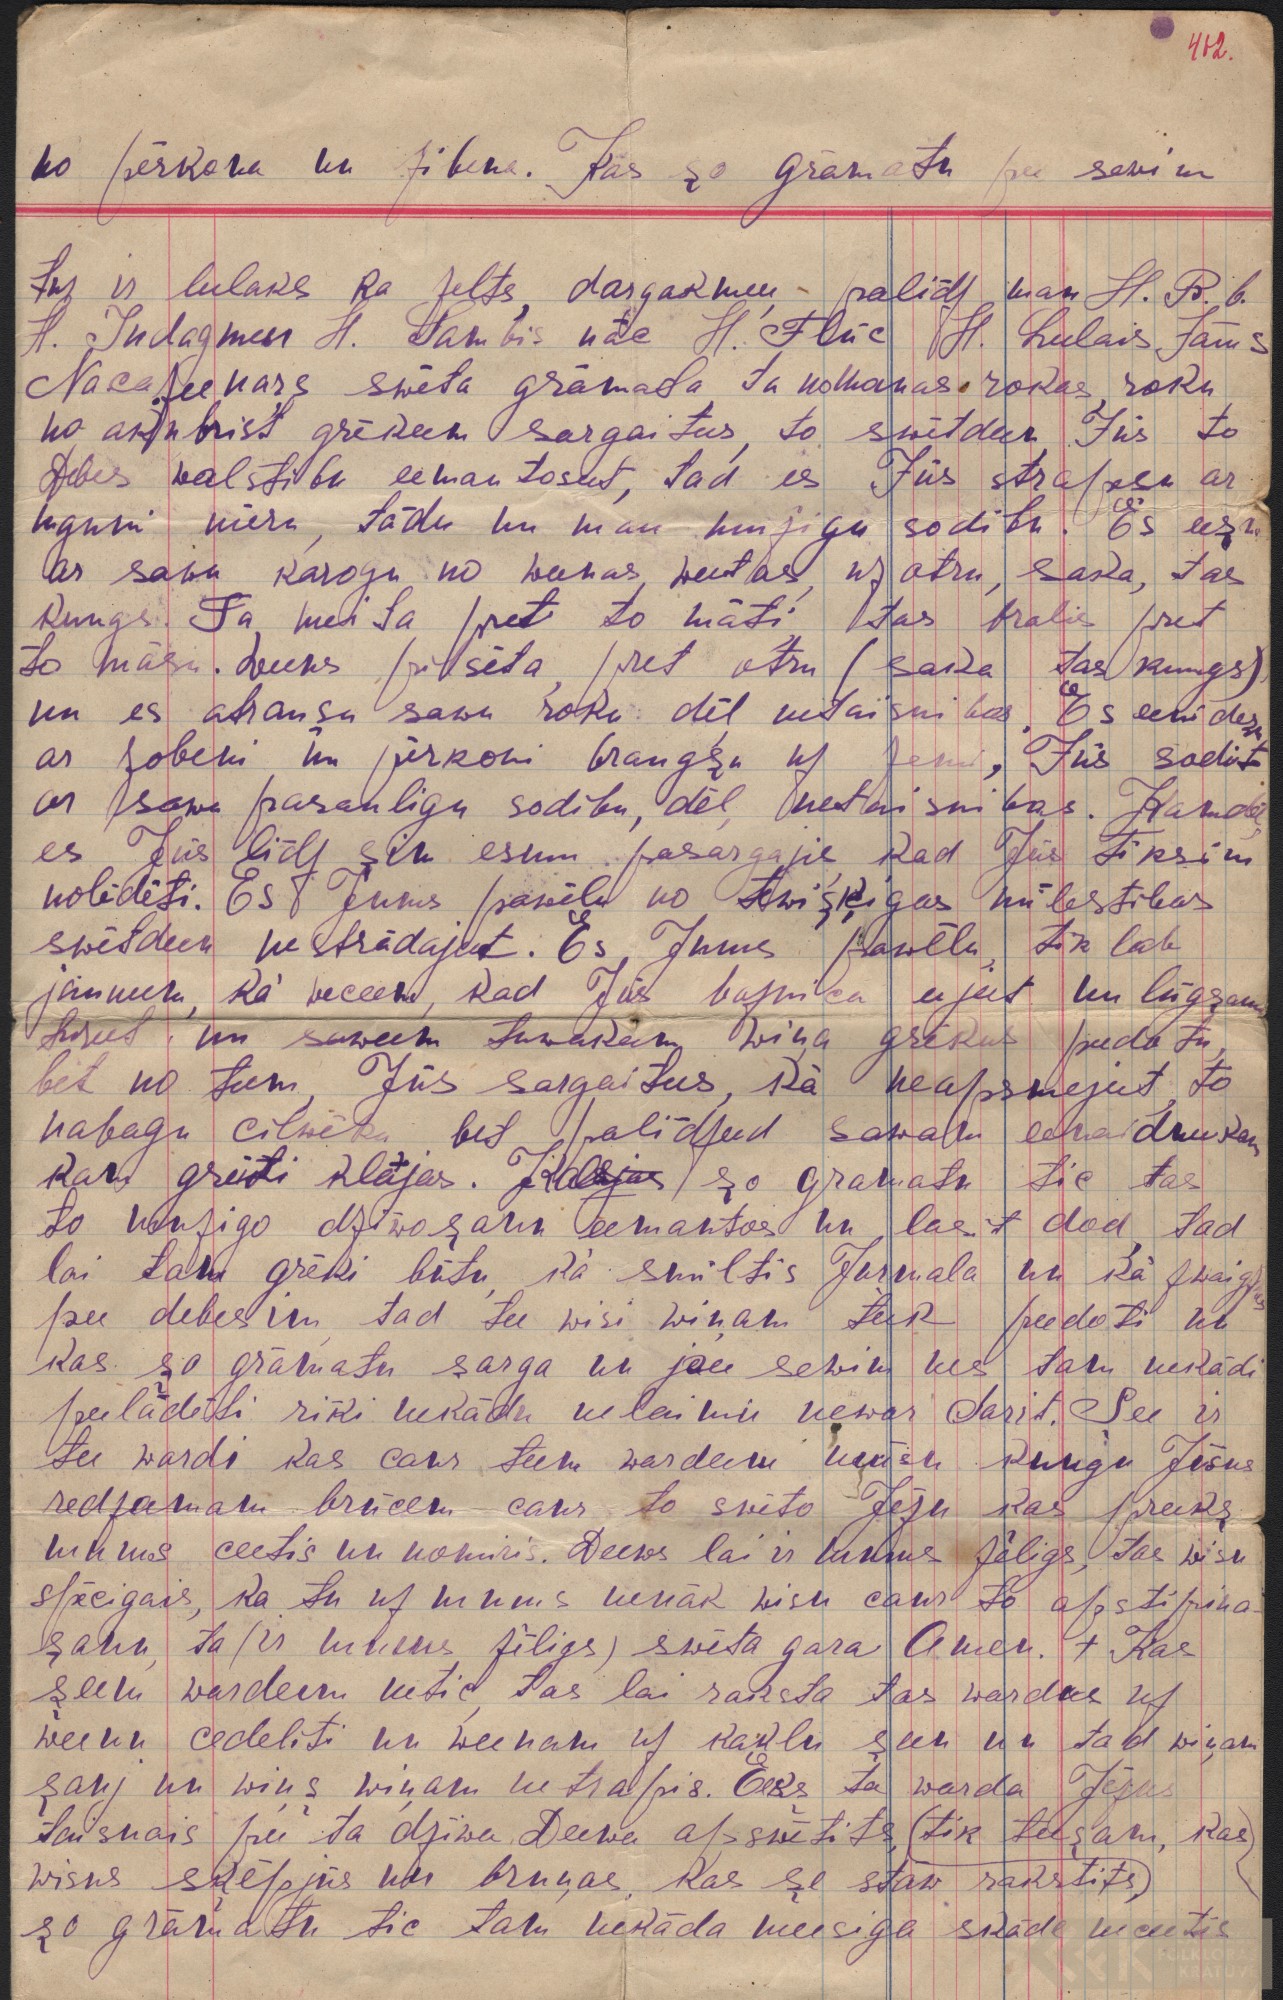 402.
no pērkona un zibena. Kas şo grāmatu pee sewim
tur ir lulaks ka zelts, dargakmeņ palidz man H. B. b.
H. Indagmen H. Sambis nāc H. Flūc H. Lulais Jānis
Nacazeenars swēta grāmata ta nomanas rokas, roku
no grēkeem sargaitus, to swētdeen Jūs to
Debes walstibu eemantoseet, tad es Jūs strapesu ar
uguni mēru, tādu un man muzigu sodibu. Es eeşu
ar sawu karogu no weenas weetas, uz otru, saka, tas
kungs. Ta meita pret to māti tas bralis pret
to māsu. Weens pilsēta pret otru (saka tas kungs)
un es atrausu sawu roku dēļ netaisnibas. Es eenidezu
ar zobeni un pērkoni brangşu uz zemi, Jūs sodit
ar sawu pasauligu sodibu, dēļ netaisnibas. Kamdēļ
es Jūs lidz şim esmu pasargajis kad Jūs tiksim
nolādēti. Es Jums pawēlu no tewişķigas mīlestibas
swētdeen nestrādajeet. Es Jums pawēlu, tik lab
jauneem, kā weceem, kad Jūs baznica ejeet un lūgşanu
tureet un saweem tuwakam wiņa grēkus peedotu,
bet no teem, Jūs sargaitus, kā neapsmejeet, to
nabagu cilwēku bet palidzeed sawam eenaidneekam
kam grūti klājas. Kas şo gramatu tic tas
to muzigo dziwoşanu eemantos un lasit dod, tad
lai tam grēki būtu kā smiltis Jurmala un kā zwaigznes
pee debesim, tad tee wisi wiņam teek peedoti un
kas şo grāmatu sarga un pee sewim nes tam nekādi
peelādēti riki nekādu nelaimu newar darit. See ir
tee wardi kas caur teem wardeem mūsu kungu Jēsus
redzamam brūcem caur to swēto Jēzu kas preekş
mums ceetis un nomiris. Deews lai ir mums žēligs, tas wisu
spēcigais, ka tu uz mums nenāk wisu caur to apstiprina-
şanu, ta (ir mums žēligs) swēta gara Amen. + Kas
şeem wardeem netic, tas lai raksta tas wardus uz
weenu cedeliti un weenam uz kaklu şeen un tad wiņam
şauj un wiņş wiņam netrapis. Eekş ta warda Jēzus
taisnais pee ta dziwa Deewa apswētits, (tik teeşam, kas)
wisus skēppjus un bruņas, kas şe staw rakstits,)
şo grāmatu tic tam nekāda meesiga skāde neceetis